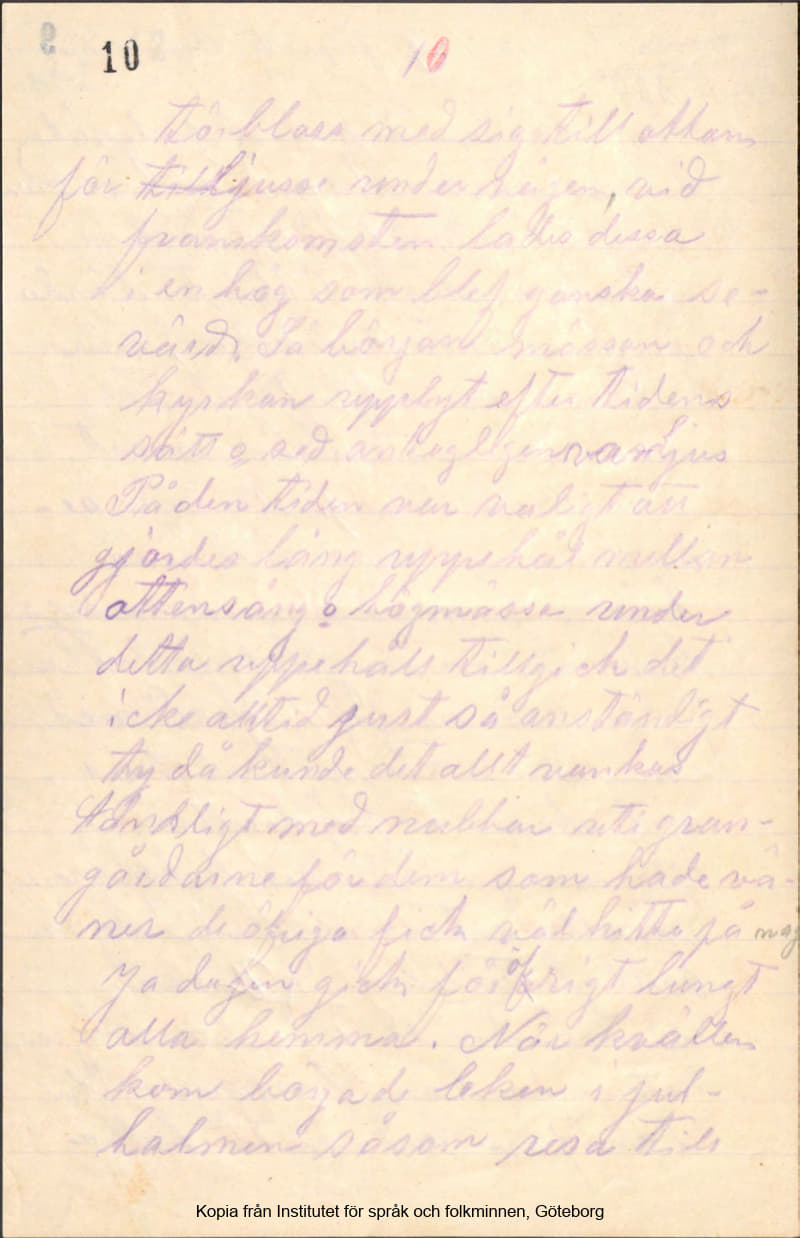 10
10
törbloss med sig till ottan
för till ljusse under vägen, vid
framkomsten lades dessa
i en hög som blef ganska se-
värd. Så börjar mässan och
kyrkan upplyst efter tidens
sätt o sed antagligen var ljus
På den tiden var vanligt att
gjordes lång uppehål mellan
ottensång o högmässa under
detta uppehåll tillgick det
icke alltid just så anständigt
ty då kunde det allt vankas
tänkligt med nubbar uti gran-
gårdarne för dem som hade vä-
ner de öfriga fick väl hitta på
Ja dagen gick för öfrigt lungt
alla hemma. När kvällen
kom började leken i jul-
halmen såsom resa till
Kopia från Institutet för språk och folkminnen, Göteborg